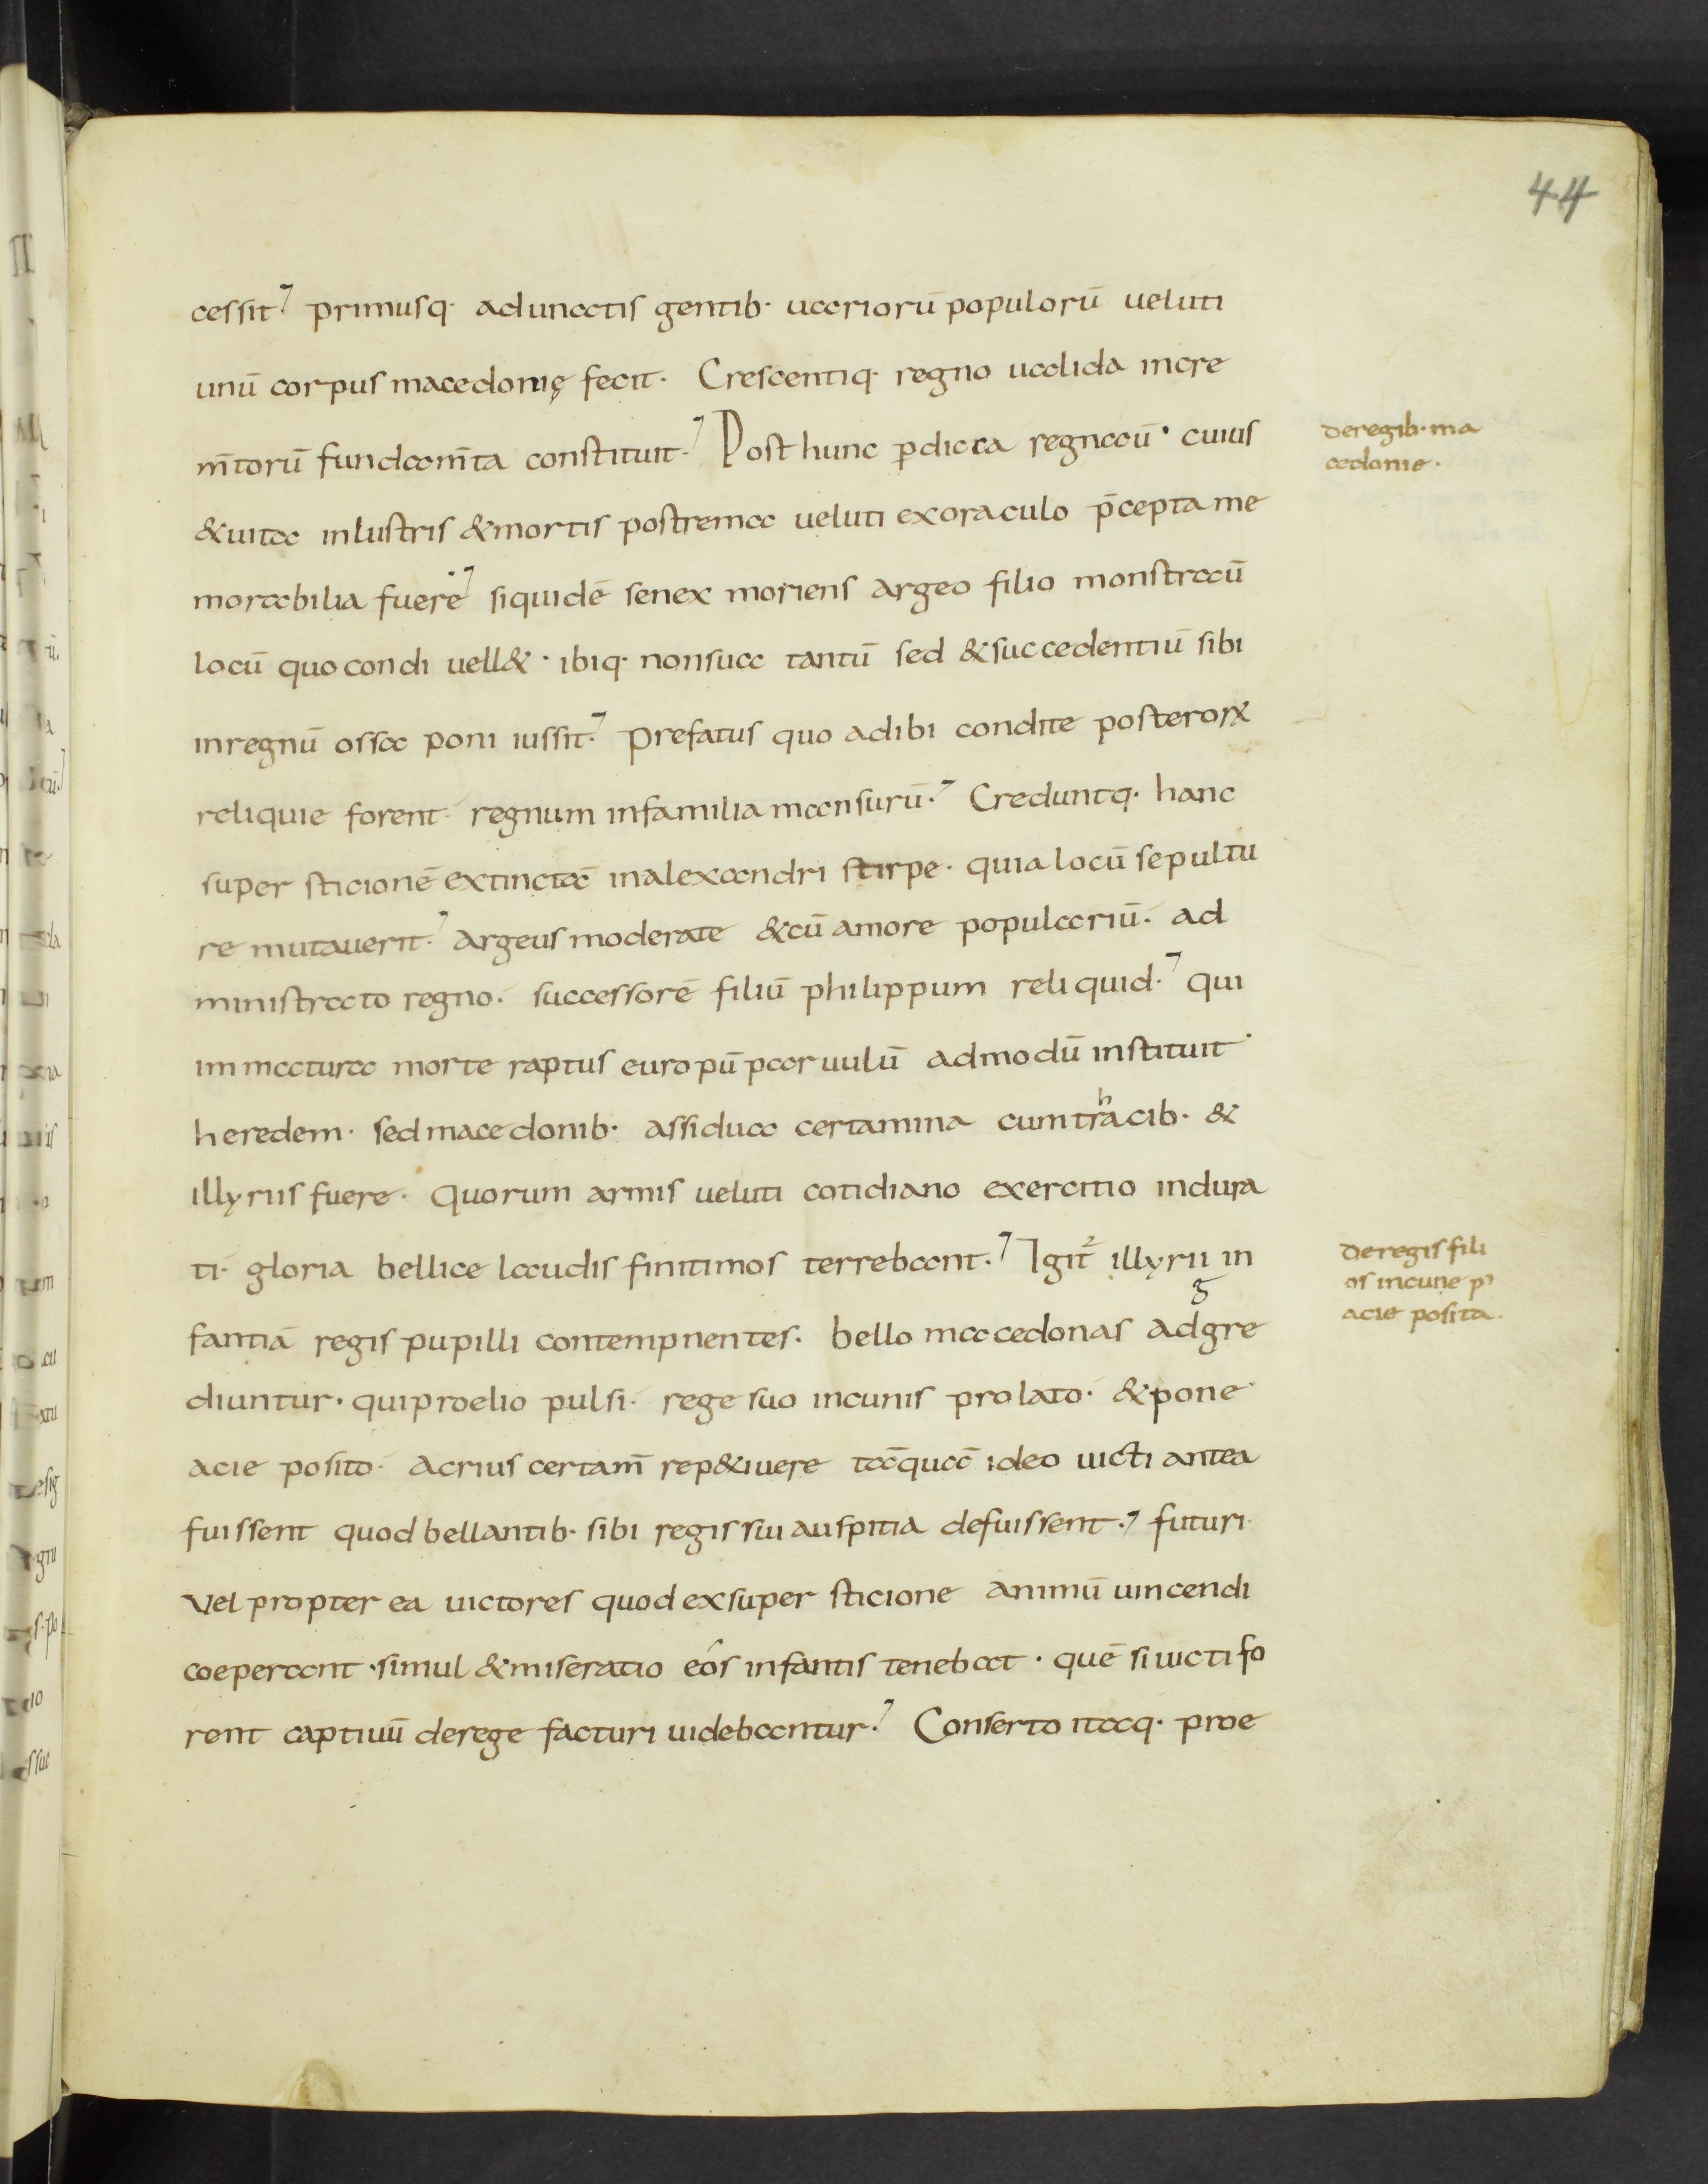 44
cessit. primusq· adunatis gentib· uariorū populorū ueluti
unū corpus macedonię fecit· Crescentiq· regno ualida incre
m̄torū fundam̄ta constituit· Post hunc ꝑdicca regnauÌ· cuius
& uita inlustris & mortis postrema ueluti ex oraculo p̄cepta me
morabilia fuere siquidē senex moriens argeo filio monstrauÌ
locū quo condi uell&· ibiq· non sua tantū sed & succedentiū sibi
in regnū ossa poni iussit· prefatus quoad ibi condite posteroꝝ
reliquie forent· regnum in familia mansurū· Creduntq· hanc
super sticionē extinctā in alexandri stirpe· quia locū sepultu
re mutauerit· argeus moderate & cū amore populariū· ad
ministrato regno· successorē filiū philippum reliquid· qui
immatura morte raptus europū paruulū admodū instituit·
heredem· sed macedonib· assidua certamina cum thracib· &
illyriis fuere· quorum armis ueluti cotidiano exercitio indura
ti· gloria bellice laudis finitimos terrebant· Igit illyrii in
fantiā regis pupilli contempnentes· bello macedonas adgre
g
diuntur· qui proelio pulsi· rege suo in cunis prolato· & pone
acie posito· acrius certam̄ rep&iuere tāquā ideo uicti antea
fuissent quod bellantib· sibi regis sui auspitia defuissent· futuri·
Vel propter ea uictores quod ex super sticione animū uincendi
coeperant· simul & miseratio eos infantis tenebat· quē si uicti fo
rent captiuū de rege facturi uidebantur· Conserto itaq· proe
de regib· ma
cedonie·
de regis fili
os in cune p
acie posita·